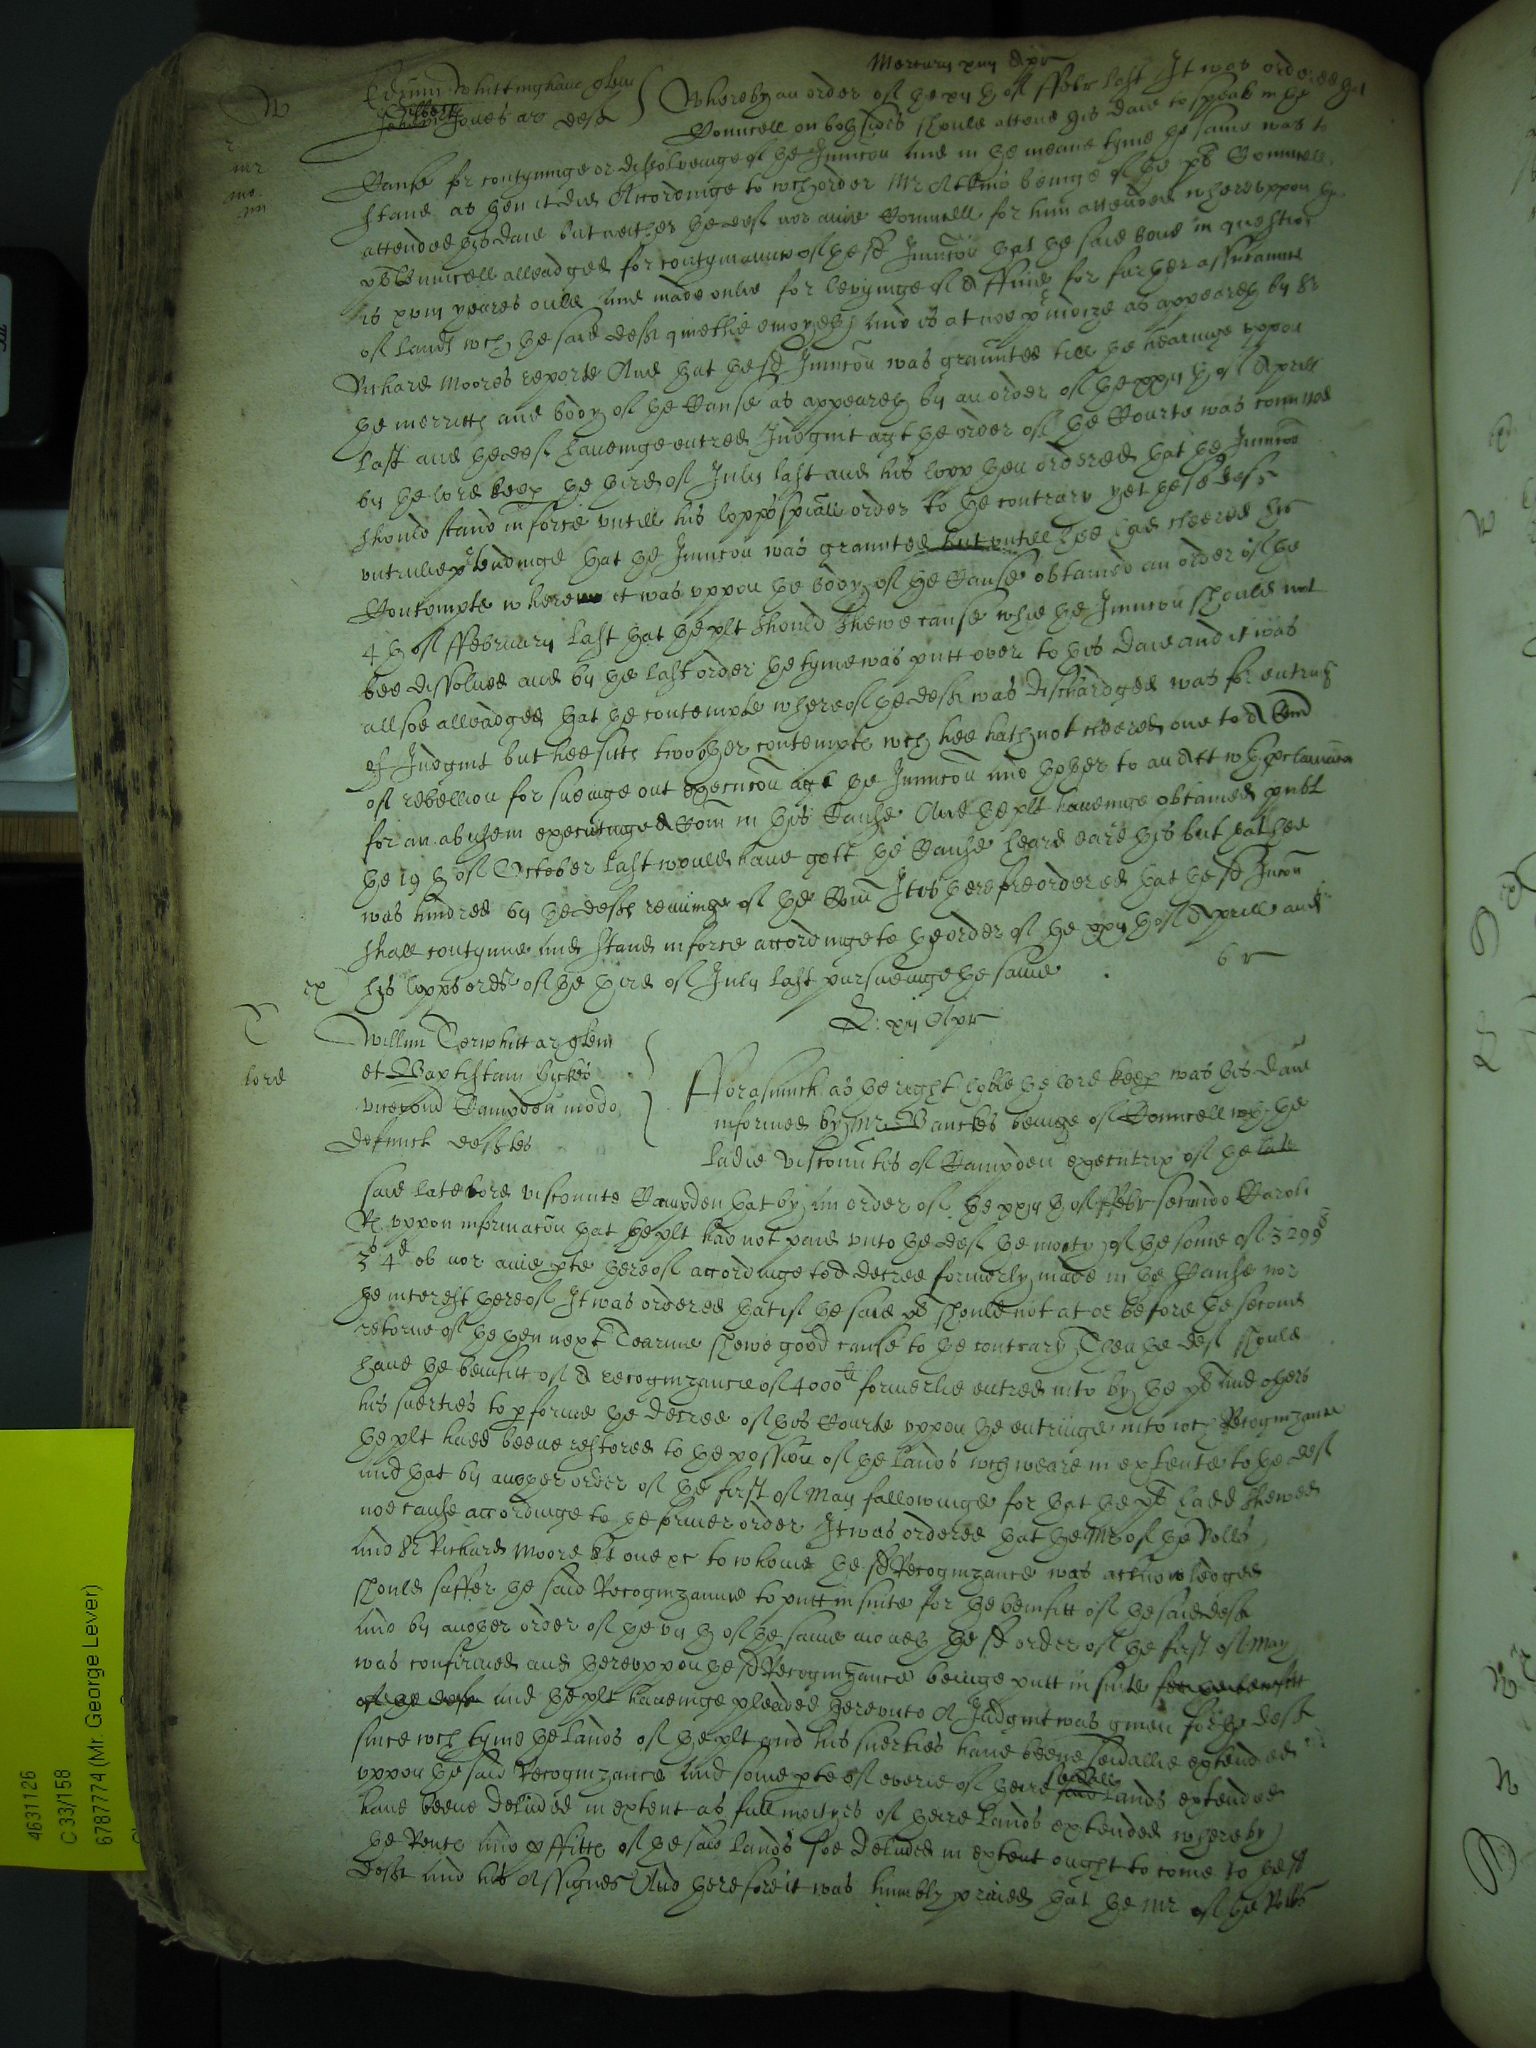 Mercurij xviij Apr
W
Edmu Whittinghame gen
Gilbert
Jones ar def
Whereby an order of the xvj th of ffebr last It was ordered that
mr
mo
Councell on both sides should attend this daie to speak in the
Cause for contynuinge or dissolveinge of the Iniuncon And in the meane tyme the same was to
stand as then it did Accordinge to wch order Mr Atkins beinge of the pl Councell
attended this daie but neither the deft nor anie Councell for him attended whereuppon the
pl Councell alleadged for contynuance of the sd Iniuncon that the said bond in question
is xviij yeares ould And made onlie for levyinge of A ffine for further assurance
of lands wch the said deft quietlie enioyeth And is at noe preiudize as appeareth by Sr
Richard Moores reporte And that the sd Iniuncon was graunted till the hearinge uppon
the merritts and body of the Cause as appeareth by an order of the xxvj th of Aprill
last and the deft haveinge entred Iudgmt agt the order of the Courte was comitted
by the lord keep the third of July last and his lopp then ordered that the Iniuncon
should stand in force untill his lopps spiall order to the contrary yet the sd deft
untrulie ptendinge that the Iniuncon was graunted but untill hee had cleered his
Contempte where it was uppon the body of the Cause obtained an order of the
4 th of ffebruary last that the plt should shewe cause whie the Iniuncon should not
bee dissolved and by the last order the tyme was putt over to this daie and it was
allsoe alleadged that the contempte whereof the deft was dischardged was for entringe
of Iudgmt but hee sitts two other contempts wch hee hath not cleered one to A Comd
of rebellion for sueinge out execucon agt the Iniuncon and thother to an Att wth proclamacon
for an abuse in executinge A Com in this Cause And the plt haveinge obtained publ
the 19 th of October last would have gott the Cause heard eare this but that hee
was hindred by the defts renuinge of the Com It is therefore ordered that the sd Iniuncon
shall contynue and stand in force accordinge to the order of the xxvj th of Aprill and
his lopps order of the third of July last pursueinge the same
ex
T
lord
Willm Terwhitt ar plein
et Baptistam Hickes
vicecom Campden modo
defunct deftes
Forasmuch as the right hoble the lord keep was this daie
informed by Mr Banckes beinge of Councell wth the
ladie viscountis of Campden executrix of the late
said late lord viscounte Campden that by an order of the xxvj th of ffebr secundo Caroli
R uppon informacon that the plt had not paid unto the deft the moity of the some of 3299
3s 4d ob nor anie pte thereof accordinge to A decree formerly made in the Cause nor
the interest thereof It was ordered that if the said pl should not at or before the second
retorne of the then next Tearme shewe good cause to the contrary Then the deft should
have the benifitt of A recognizance of 4000li formerlie entred into by the pl and others
his suerties to pforme the decree of this Courte uppon the entringe into wch Recognizance
the plt hadd beene restored to the possion of the lands wch weare in extente to the deft
and that by another order of the first of May followinge for that the pl hadd shewed
noe cause accordinge to the former order It was ordered that the Mr of the Rolls
and Sr Richard Moore kt one &c to whome the sd Recognizance was acknowledged
should suffer the said Recognizance to putt in suite for the benifitt of the said deft
And by another order of the vij th of the same moneth the sd order of the first of May
was confirmed and thereuppon the sd Recognizance beinge putt in suite for the benifitt
of the deft And the plt haveinge pleaded thereunto A Iudgmt was given for the deft
since wch tyme the lands of the plt and his suerties have beene seuallie extended
uppon the said Recognizance And some pte of everie of theire said seuall lands extended
have beene delivd in extent as full moityes of theire lands extended whereby
the Rents and pffitts of the said lands soe delived in extent ought to come to the sd
Deft and his Assignes And therefore it was humbly praied that the Mr of the Rolls
4631126
C 33/158
6787774 (Mr. George Lever)